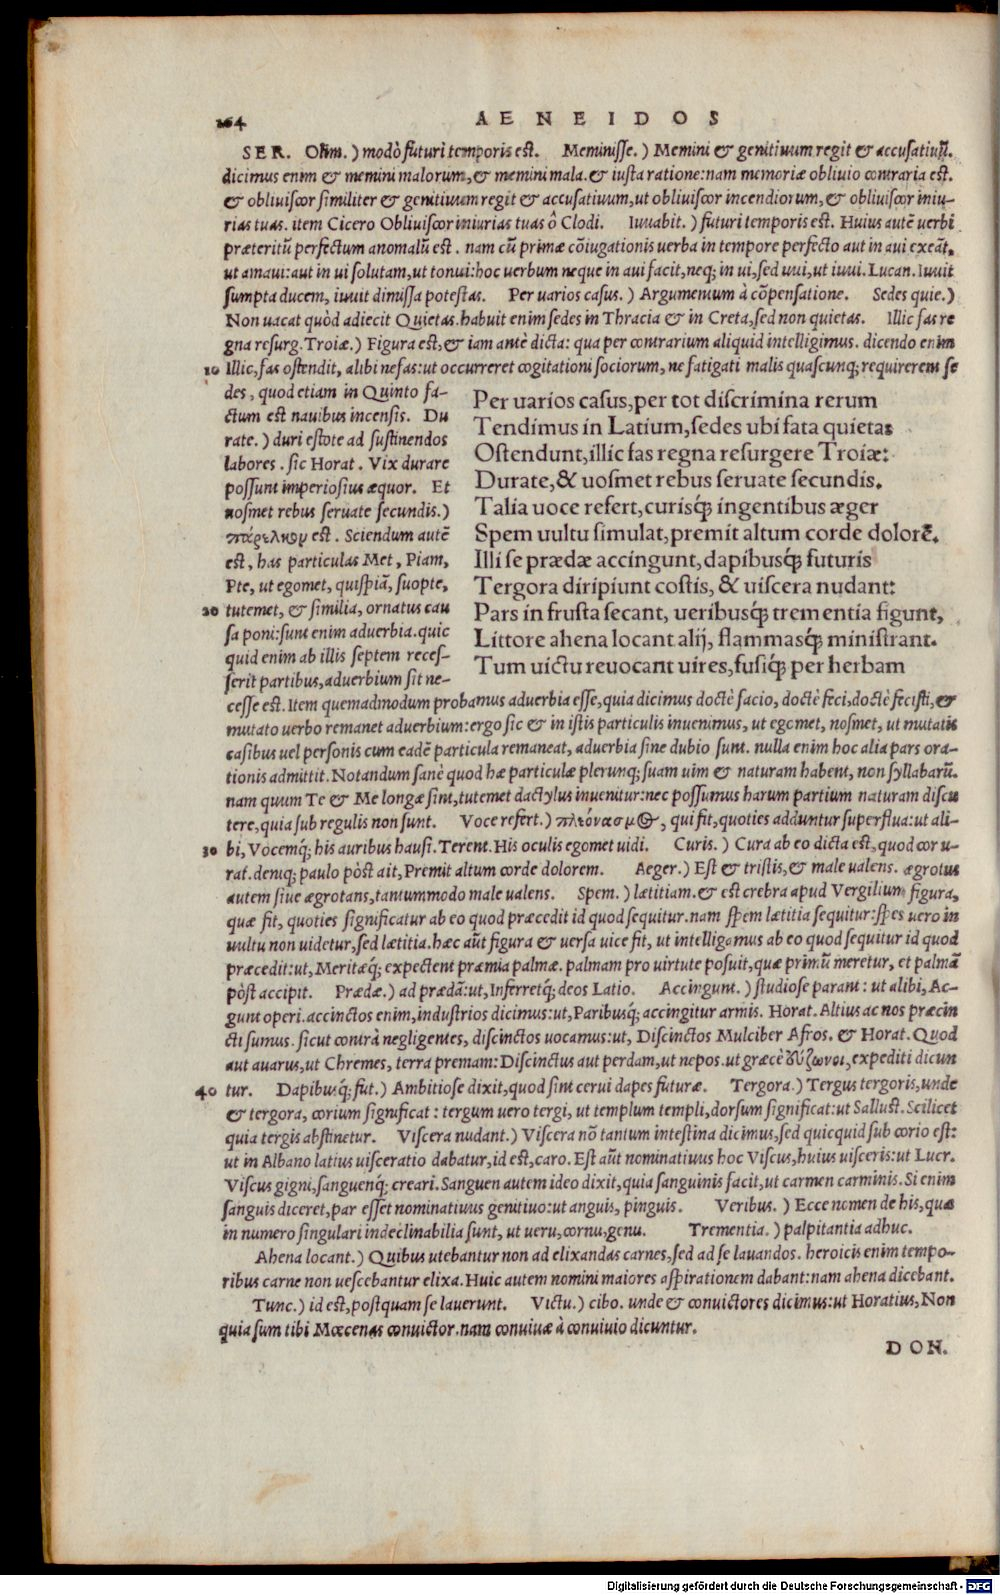 164 AENEIDOS
SER. Olim.) modò futuri temporis est. Meminisse.) Memini & genitiuum regit & accusatiuū.
dicimus enim & memini malorum, & memini mala. & iusta ratione: nam memoriæ obliuio contraria est.
& obliuiscor similiter & genitiuum regit & accusatiuum, ut obliuiscor incendiorum, & obliuiscor iniu-
rias tuas. item Cicero Obliuiscor iniurias tuas ô Clodi. Iuuabit.) futuri temporis est. Huius autē uerbi
præteritū perfectum anomalū est. nam cū primæ cōiugationis uerba in tempore perfecto aut in aui exeāt,
ut amaui: aut in ui solutam, ut tonui: hoc uerbum neque in aui facit, neq; in ui, sed uui, ut iuui. Lucan. Iuuit
sumpta ducem, iuuit dimissa potestas. Per uarios casus.) Argumentum à cōpensatione. Sedes quie.)
Non uacat quòd adiecit Quietas. habuit enim sedes in Thracia & in Creta, sed non quietas. Illic fas re
gna resurg. Troiæ.) Figura est, & iam antè dicta: qua per contrarium aliquid intelligimus. dicendo enim
10 Illic, fas ostendit, alibi nefas: ut occurreret cogitationi sociorum, ne fatigati malis quascunq; requirerem se
des, quod etiam in Quinto fa-
ctum est nauibus incensis. Du
rate.) duri estote ad sustinendos
labores. sic Horat. Vix durare
possunt imperiosius æquor. Et
uosmet rebus seruate secundis.)
παρέλκον est. Sciendum autē
est, has particulas Met, Piam,
Pte, ut egomet, quispiā, suopte,
20 tutemet, & similia, ornatus cau
sa poni: sunt enim aduerbia. quic
quid enim ab illis septem reces-
serit partibus, aduerbium sit ne-
Per uarios casus, per tot discrimina rerum
Tendimus in Latium, sedes ubi fata quietas
Ostendunt, illic fas regna resurgere Troiæ:
Durate, & uosmet rebus seruate secundis.
Talia uoce refert, curisq́; ingentibus æger
Spem uultu simulat, premit altum corde dolorē.
Illi se prædæ accingunt, dapibusq́; futuris
Tergora diripiunt costis, & uiscera nudant:
Pars in frusta secant, ueribusq́; trementia figunt,
Littore ahena locant alij, flammasq́; ministrant.
Tum uictu reuocant uires, fusiq́; per herbam
cesse est. Item quemadmodum probamus aduerbia esse, quia dicimus doctè facio, doctè feci, doctè fecisti, &
mutato uerbo remanet aduerbium: ergo sic & in istis particulis inuenimus, ut egomet, nosmet, ut mutatis
casibus uel personis cum eadē particula remaneat, aduerbia sine dubio sunt. nulla enim hoc alia pars ora-
tionis admittit. Notandum sanè quod hæ particulæ plerunq; suam uim & naturam habent, non syllabarū.
nam quum Te & Me longæ sint, tutemet dactylus inuenitur: nec possumus harum partium naturam discu
tere, quia sub regulis non sunt. Voce refert.) πλεόνασμος, qui fit, quoties adduntur superflua: ut ali-
30 bi, Vocemq́; his auribus hausi. Terent. His oculis egomet uidi. Curis.) Cura ab eo dicta est, quod cor u-
rat. deniq; paulo pòst ait, Premit altum corde dolorem. Aeger.) Est & tristis, & male ualens. ægrotus
autem siue ægrotans, tantummodo male ualens. Spem.) lætitiam. & est crebra apud Vergilium figura,
quæ fit, quoties significatur ab eo quod præcedit id quod sequitur. nam spem lætitia sequitur: spes uero in
uultu non uidetur, sed lætitia. hæc aūt figura & uersa uice fit, ut intelligamus ab eo quod sequitur id quod
præcedit: ut, Meritæq́; expectent præmia palmæ. palmam pro uirtute posuit, quæ primū meretur, et palmā
pòst accipit. Prædæ.) ad prædā: ut, Inferretq́; deos Latio. Accingunt.) studiose parant: ut alibi, Ac-
gunt operi. accinctos enim, industrios dicimus: ut, Paribusq́; accingitur armis. Horat. Altius ac nos præcin
cti sumus. sicut contrà negligentes, discinctos uocamus: ut, Discinctos Mulciber Afros. & Horat. Quod
aut auarus, ut Chremes, terra premam: Discinctus aut perdam, ut nepos. ut græcè ἐύζωνοι, expediti dicun
40 tur. Dapibusq́; fut.) Ambitiose dixit, quod sint cerui dapes futuræ. Tergora.) Tergus tergoris, unde
& tergora, corium significat: tergum uero tergi, ut templum templi, dorsum significat: ut Sallust. Scilicet
quia tergis abstinetur. Viscera nudant.) Viscera nō tantum intestina dicimus, sed quicquid sub corio est:
ut in Albano latius uisceratio dabatur, id est, caro. Est aūt nominatiuus hoc Viscus, huius uisceris: ut Lucr.
Viscus gigni, sanguenq́; creari. Sanguen autem ideo dixit, quia sanguinis facit, ut carmen carminis. Si enim
sanguis diceret, par esset nominatiuus genitiuo: ut anguis, pinguis. Veribus.) Ecce nomen de his, quæ
in numero singulari indeclinabilia sunt, ut ueru, cornu, genu. Trementia.) palpitantia adhuc.
Ahena locant.) Quibus utebantur non ad elixandas carnes, sed ad se lauandos. heroicis enim tempo-
ribus carne non uescebantur elixa. Huic autem nomini maiores aspirationem dabant: nam ahena dicebant.
Tunc.) id est, postquam se lauerunt. Victu.) cibo. unde & conuictores dicimus: ut Horatius, Non
quia sum tibi Mœcenas conuictor. nam conuiuæ à conuiuio dicuntur.
DON.
Digitalisierung gefördert durch die Deutsche Forschungsgemeinschaft - DFG